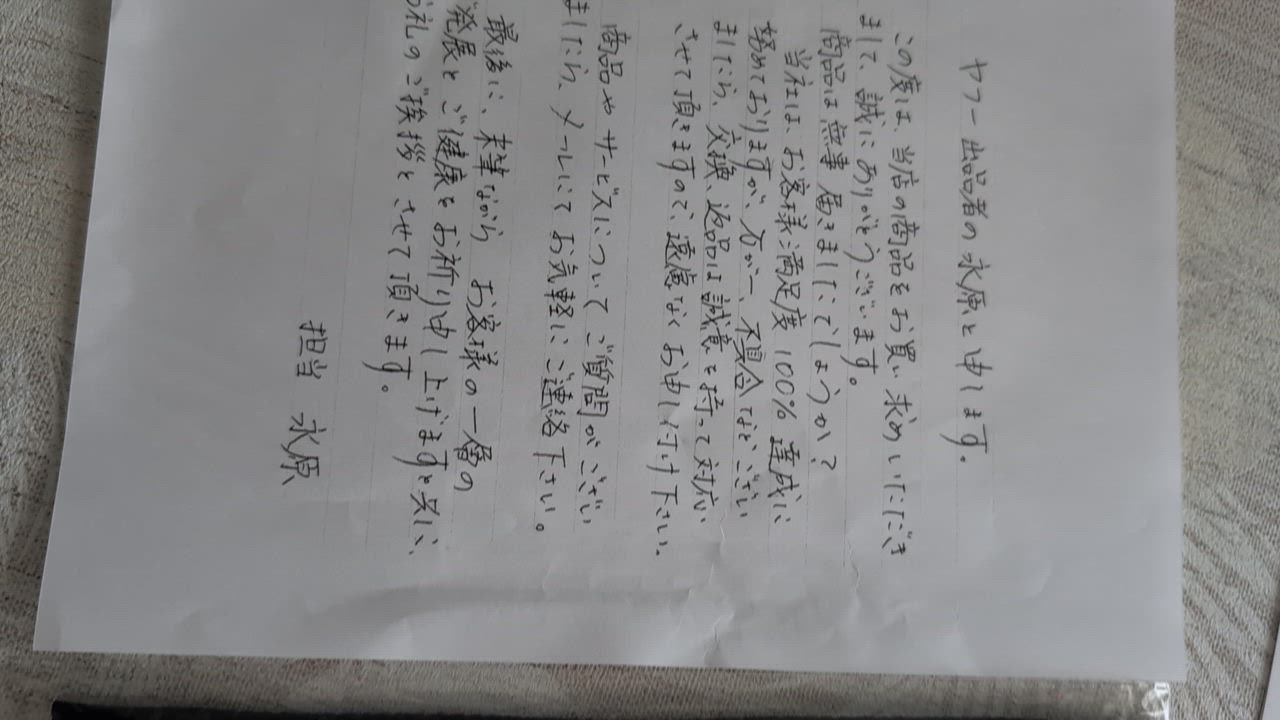 ヤフー出品者の永原と申します。
この度は、当店の商品をお買い求めいただき
まして、誠にありがとうございます。
商品は無事届きましたでしょうか?
当社は、お客様満足度100%達成に
努めておりますが、万が一、不具合などござい
ましたら、交換、返品は誠意を持って対応
させて頂きますので、遠慮なくお申し付け下さい。
商品やサービスについてご質問がござい
ましたら、メールにてお気軽にご連絡下さい。
最後に、末筆ながら お客様の一層の
ご発展とご健康をお祈り申し上げますと共に、
お礼のご挨拶とさせて頂きます。
担当 永原